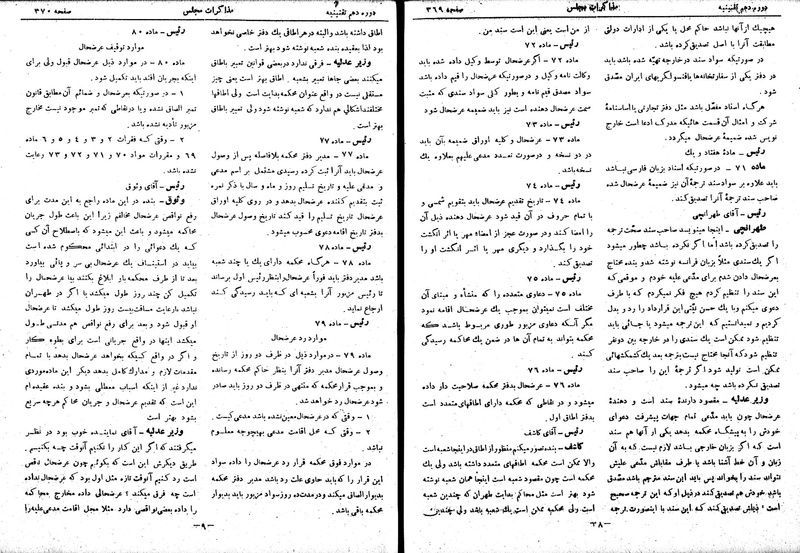 دوره دهم تقنینیه مذاکرات مجلس صفحه ۳۶۹
هیچیك از آنها نباشد حاکم محل یا یکی از ادارات دولتی
مطابقت آنرا با اصل تصدیق کرده باشد.
در صورتیکه سواد سند در خارجه تهیه شده باشد باید
در دفتر یکی از سفارتخانه ها یا قنسولگریهای ایران مصدق
هرگاه اسناد مفصل باشد مثل دفتر تجارتی یا اساسنامهٔ
شرکت و امثال آن قسمت هائیکه مدرك ادعا است خارج
نویس شده ضمیمهٔ عرضحال میگردد.
رئیس - مادهٔ هفتاد و یك
ماده ۷۱ - در صورتیکه اسناد بزبان فارسی نباشد
باید علاوه بر سواد سند ترجمهٔ آن نیز ضمیمهٔ عرضحال شده
صاحب سند ترجمهٔ آنرا تصدیق کند.
رئیس - آقای طهرانچی
طهرانچی - اینجا مینویسد صاحب سند صحت ترجمه
را تصدیق کرده باشد اما اگر نکرده باشد چطور میشود
اگر یك سندی مثلا بزبان فرانسه نوشته شد و بنده محتاج
بعرضحال دادن شدم برای مدعی علیه خودم و موقعی که
این سند را تنظیم کردم هیچ فکر نمیکردم که با طرف
دعوی میکنم و با یك حسن نیتی این قرارداد را رد و بدل
کردیم و نمیدانستیم که این ترجمه میشود یا جائی باید
تنظیم شود ممکن است یك سندی را در خارجه بین دونفر
تنظیم شود که آنجا محتاج نیست بترجمه بعد یك کشمکشهائی
ممکن است تولید شود اگر ترجمهٔ این را صاحب سند
تصدیق نکرده باشد چه میشود.
وزیر عدلیه - مقصود دارندهٔ سند است و دهندهٔ
عرضحال چون باید مدعی تمام جهات پیشرفت دعوای
خودش را به پیشگاه محکمه بدهد یکی از آنها هم سند
است که اگر بزبان خارجی باشد لازم نیست که به آن
زبان و آن خط آشنا باشد یا طرف مقابلش مدعی علیش
بتواند سند را بخواند پس باید این سند مترجم باشد مصدق
باشد خودش هم تصدیق کند در ذیل او که این ترجمه صحیح
است ذیلش تصدیق کند که این سند با اینصورت ترجمه
از من است یعنی این است سند من.
رئیس - ماده ۷۲
ماده ۷۲ - اگر عرضحال توسط وکیل داده شده باید
وکالت نامه وکیل و در صورتیکه عرضحال را قیم داده باشد
سواد مصدق قیم نامه و بطور کلی سواد سندی که مثبت
سمت عرضحال دهنده است نیز باید ضمیمه عرضحال شود
رئیس - ماده ۷۳
ماده ۷۳ - عرضحال و کلیه اوراق ضمیمه بآن باید
در دو نسخه و درصورت تعدد مدعی علیهم بعلاوه یك
نسخه باشد.
رئیس - ماده ۷۴
ماده ۷۴ - تاریخ تقدیم عرضحال باید بتقویم شمسی و
با تمام حروف در آن قید شود عرضحال دهنده ذیل آن
را امضا کند و درصورت عجز از امضاء مهر یا اثر انگشت
خود را بگذارد و دیگری مهر یا اثر انگشت او را
تصدیق کند.
رئیس - ماده ۷۵
ماده ۷۵ - دعاوی متعدده را که منشاء و مبنای آن
مختلف است نمیتوان بموجب یك عرضحال اقامه نمود
مگر آنکه دعاوی مزبور طوری مربوط باشد که
محکمه بتواند به تمام آن ها در ضمن یك محاکمه رسیدگی
کند.
رئیس - ماده ۷۶
ماده ۷۶ - عرضحال بدفتر محکمه صلاحیت دار داده
میشود و در نقاطی که محکمه دارای اطاقهای متعدد است
بدفتر اطاق اول.
رئیس - آقای کاشف
کاشف - بنده تصور میکنم منظور از اطاق در اینجا شعبه است
والا ممکن است محکمه اطاقهای متعدد داشته باشد ولی یك
محکمه است چون مقصود شعبه است اینجا همان شعبه نوشته
شود بهتر است مثل محاکم بدایت طهران که چندین شعبه
است ولی محکمه ممکن است یك شعبه باشد ولی چندین
- ۳۸ -
دوره دهم تقنینیه مذاکرات مجلس صفحه ۳۷۰
اطاق داشته باشد والبته در هر اطاق یك دفتر خاصی نخواهد
بود لذا بعقیده بنده شعبه نوشته شود بهتر است.
وزیر عدلیه - فرقی ندارد در بعضی قوانین تعبیر باطاق
میکنند بعضی جاها تعبیر بشعبه. اطاق بهتر است یعنی چیز
مستقلی نیست در واقع عنوان محکمه بدایت است ولی اطاقها
مختلفند اشکالی هم ندارد که شعبه نوشته شود ولی تعبیر باطاق
بهتر است.
رئیس - ماده ۷۷
ماده ۷۷ - مدیر دفتر محکمه بلافاصله پس از وصول
عرضحال باید آنرا ثبت کرده رسیدی مشتمل بر اسم مدعی
و مدعی علیه و تاریخ تسلیم روز و ماه و سال با ذکر نمره
ثبت بتقدیم کننده عرضحال بدهد و در روی کلیه اوراق
عرضحال تاریخ تسلیم را قید کند تاریخ وصول عرضحال
بدفتر تاریخ اقامه دعوی محسوب میشود.
رئیس - ماده ۷۸
ماده ۷۸ - هرگاه محکمه دارای یك یا چند شعبه
باشد مدیر دفتر باید فوراً عرضحال را بنظر رئیس اول برساند
تا رئیس مزبور آنرا بشعبه ای که باید رسیدگی کند
ارجاع نماید.
رئیس - ماده ۷۹
موارد رد عرضحال
ماده ۷۹ - در موارد ذیل در ظرف دو روز از تاریخ
وصول عرضحال مدیر دفتر آنرا بنظر حاکم محکمه رسانده
و بموجب قرار محکمه که منتهی در ظرف دو روز باید صادر
شود عرضحال رد خواهد شد.
۱ - وقتی که در عرضحال معین نشده باشد مدعی کیست.
۲ - وقتی که محل اقامت مدعی بهیچوجه معلوم
نباشد.
در موارد فوق محکمه قرار رد عرضحال را داده سواد
این قرار را که باید حاوی علت رد باشد مدیر دفتر محکمه
بدیوار الصاق میکند و در مدت ده روز سواد مزبور باید بدیوار
محکمه باقی باشد.
رئیس - ماده ۸۰
موارد توقیف عرضحال
ماده ۸۰ - در موارد ذیل عرضحال قبول ولی برای
اینکه بجریان افتد باید تکمیل شود.
۱ - در صورتیکه بعرضحال و ضمائم آن مطابق قانون
تمبر الصاق نشده ویا در نقاطی که تمبر موجود نیست مخارج
مزبور تأدیه نشده باشد.
۲ - وقتی که فقرات ۲ و ۳ و ۴ و ۵ و ۶ ماده
۶۹ و مقررات مواد ۷۰ و ۷۱ و ۷۲ و ۷۳ رعایت
نشده باشد.
رئیس - آقای وثوق
وثوق - بنده در این ماده راجع به این مدت برای
رفع نواقص عرضحال مخالفم زیرا این باعث طول جریان
محاکمه میشود و باعث این میشود که باصطلاح آن کسی
که یك دعوائی را در ابتدائی محکوم شده است
بیاید در استیناف یك عرضحال بی سر و پائی بیاورد
بعد تا از طرف محکمه باو ابلاغ بکنند بیا عرضحال را
تکمیل کن چند روز طول میکشد یا اگر در طهران
نباشد با رعایت مسافت بیست روز طول میکشد تا عرضحال
او قبول شود و بعد برای رفع نواقص هم مدتی طول
میکشد اینها در واقع جریانی است برای بطوء کار
و اگر در واقع کسیکه بخواهد عرضحال بدهد با تمام
مقدمات لازم و مدارك کامل بدهد دیگر این ماده موردی
ندارد غیر از اینکه اسباب معطلی بشود و بنده عقیده ام
این است که تقدیم عرضحال و جریان محاکم هرچه سریع
بشود بهتر است
وزیر عدلیه - آقای نماینده خوب بود در نظر
میگرفتند که اگر این کار را نکنیم آنوقت چه بکنیم.
طریق دیگرش این است که بگوئیم چون عرضحال ناقص
است رد کنیم آنوقت تازه مثل اول بود که عرضحال نداده
است چه فرق میکند؟ عرضحالی داده مخارج محاکمه
را داده بعضی نواقصی دارد مثلا محل اقامت مدعی علیه را
- ۹ -